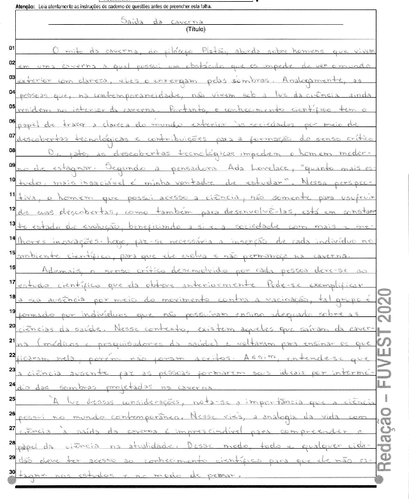 Atenção: Leia atentamente as instruções do caderno de questões antes de preencher esta folha.
Saída da caverna
(Título)
01 O mito da caverna, do filósofo Platão, aborda sobre homens que vivem
02 em uma caverna a qual possui um obstáculo que os impede de ver o mundo
03 exterior com clareza, eles o enxergam pelas sombras. Analogamente, as
04 pessoas que, na contemporaneidade, não vivem sob a luz da ciência ainda
05 residem no interior da caverna. Portanto, o conhecimento científico tem o
06 papel de trazer a clareza do mundo exterior às sociedades por meio de
07 descobertas tecnológicas e contribuições para a formação do senso crítico.
08 De fato, as descobertas tecnológicas impedem o homem moder-
09 no de estagnar. Segundo a pensadora Ada Lovelace, "quanto mais es-
10 tudo, mais insaciável é minha vontade de estudar". Nessa perspec-
11 tiva, o homem que possui acesso à ciência, não somente para usufruir
12 de suas descobertas, como também para desenvolvê-las, está em constan-
13 te estado de evolução beneficiando a si e a sociedade com mais e me-
14 lhores inovações. Logo, faz-se necessária a inserção de cada indivíduo no
15 ambiente científico, para que ele evolua e não permaneça na caverna.
16 Ademais, o senso crítico desenvolvido por cada pessoa deve-se ao
17 estudo científico que ela obteve anteriormente. Pode-se exemplificar
18 a sua ausência por meio do movimento contra a vacinação, tal grupo é
19 formado por indivíduos que não possuíram ensino adequado sobre as
20 ciências da saúde. Nesse contexto, existem aqueles que saíram da caver-
21 na (médicos e pesquisadores da saúde) e voltaram para ensinar os que
22 ficaram nela, porém não foram aceitos. Assim, entende-se que
23 a ciência ausente faz as pessoas formarem seus ideais por intermé-
24 dio das sombras projetadas na caverna.
25 À luz dessas considerações, nota-se a importância que a ciência
26 possui no mundo contemporâneo. Nesse viés, a analogia da vida com
27 ciência à saída da caverna é imprescindível para compreender o
28 papel da ciência na atualidade. Desse modo todo e qualquer cida-
29 dão deve ter acesso ao conhecimento científico para que ele não es-
30 tagne nos estudos e no modo de pensar.
Redação – FUVEST 2020